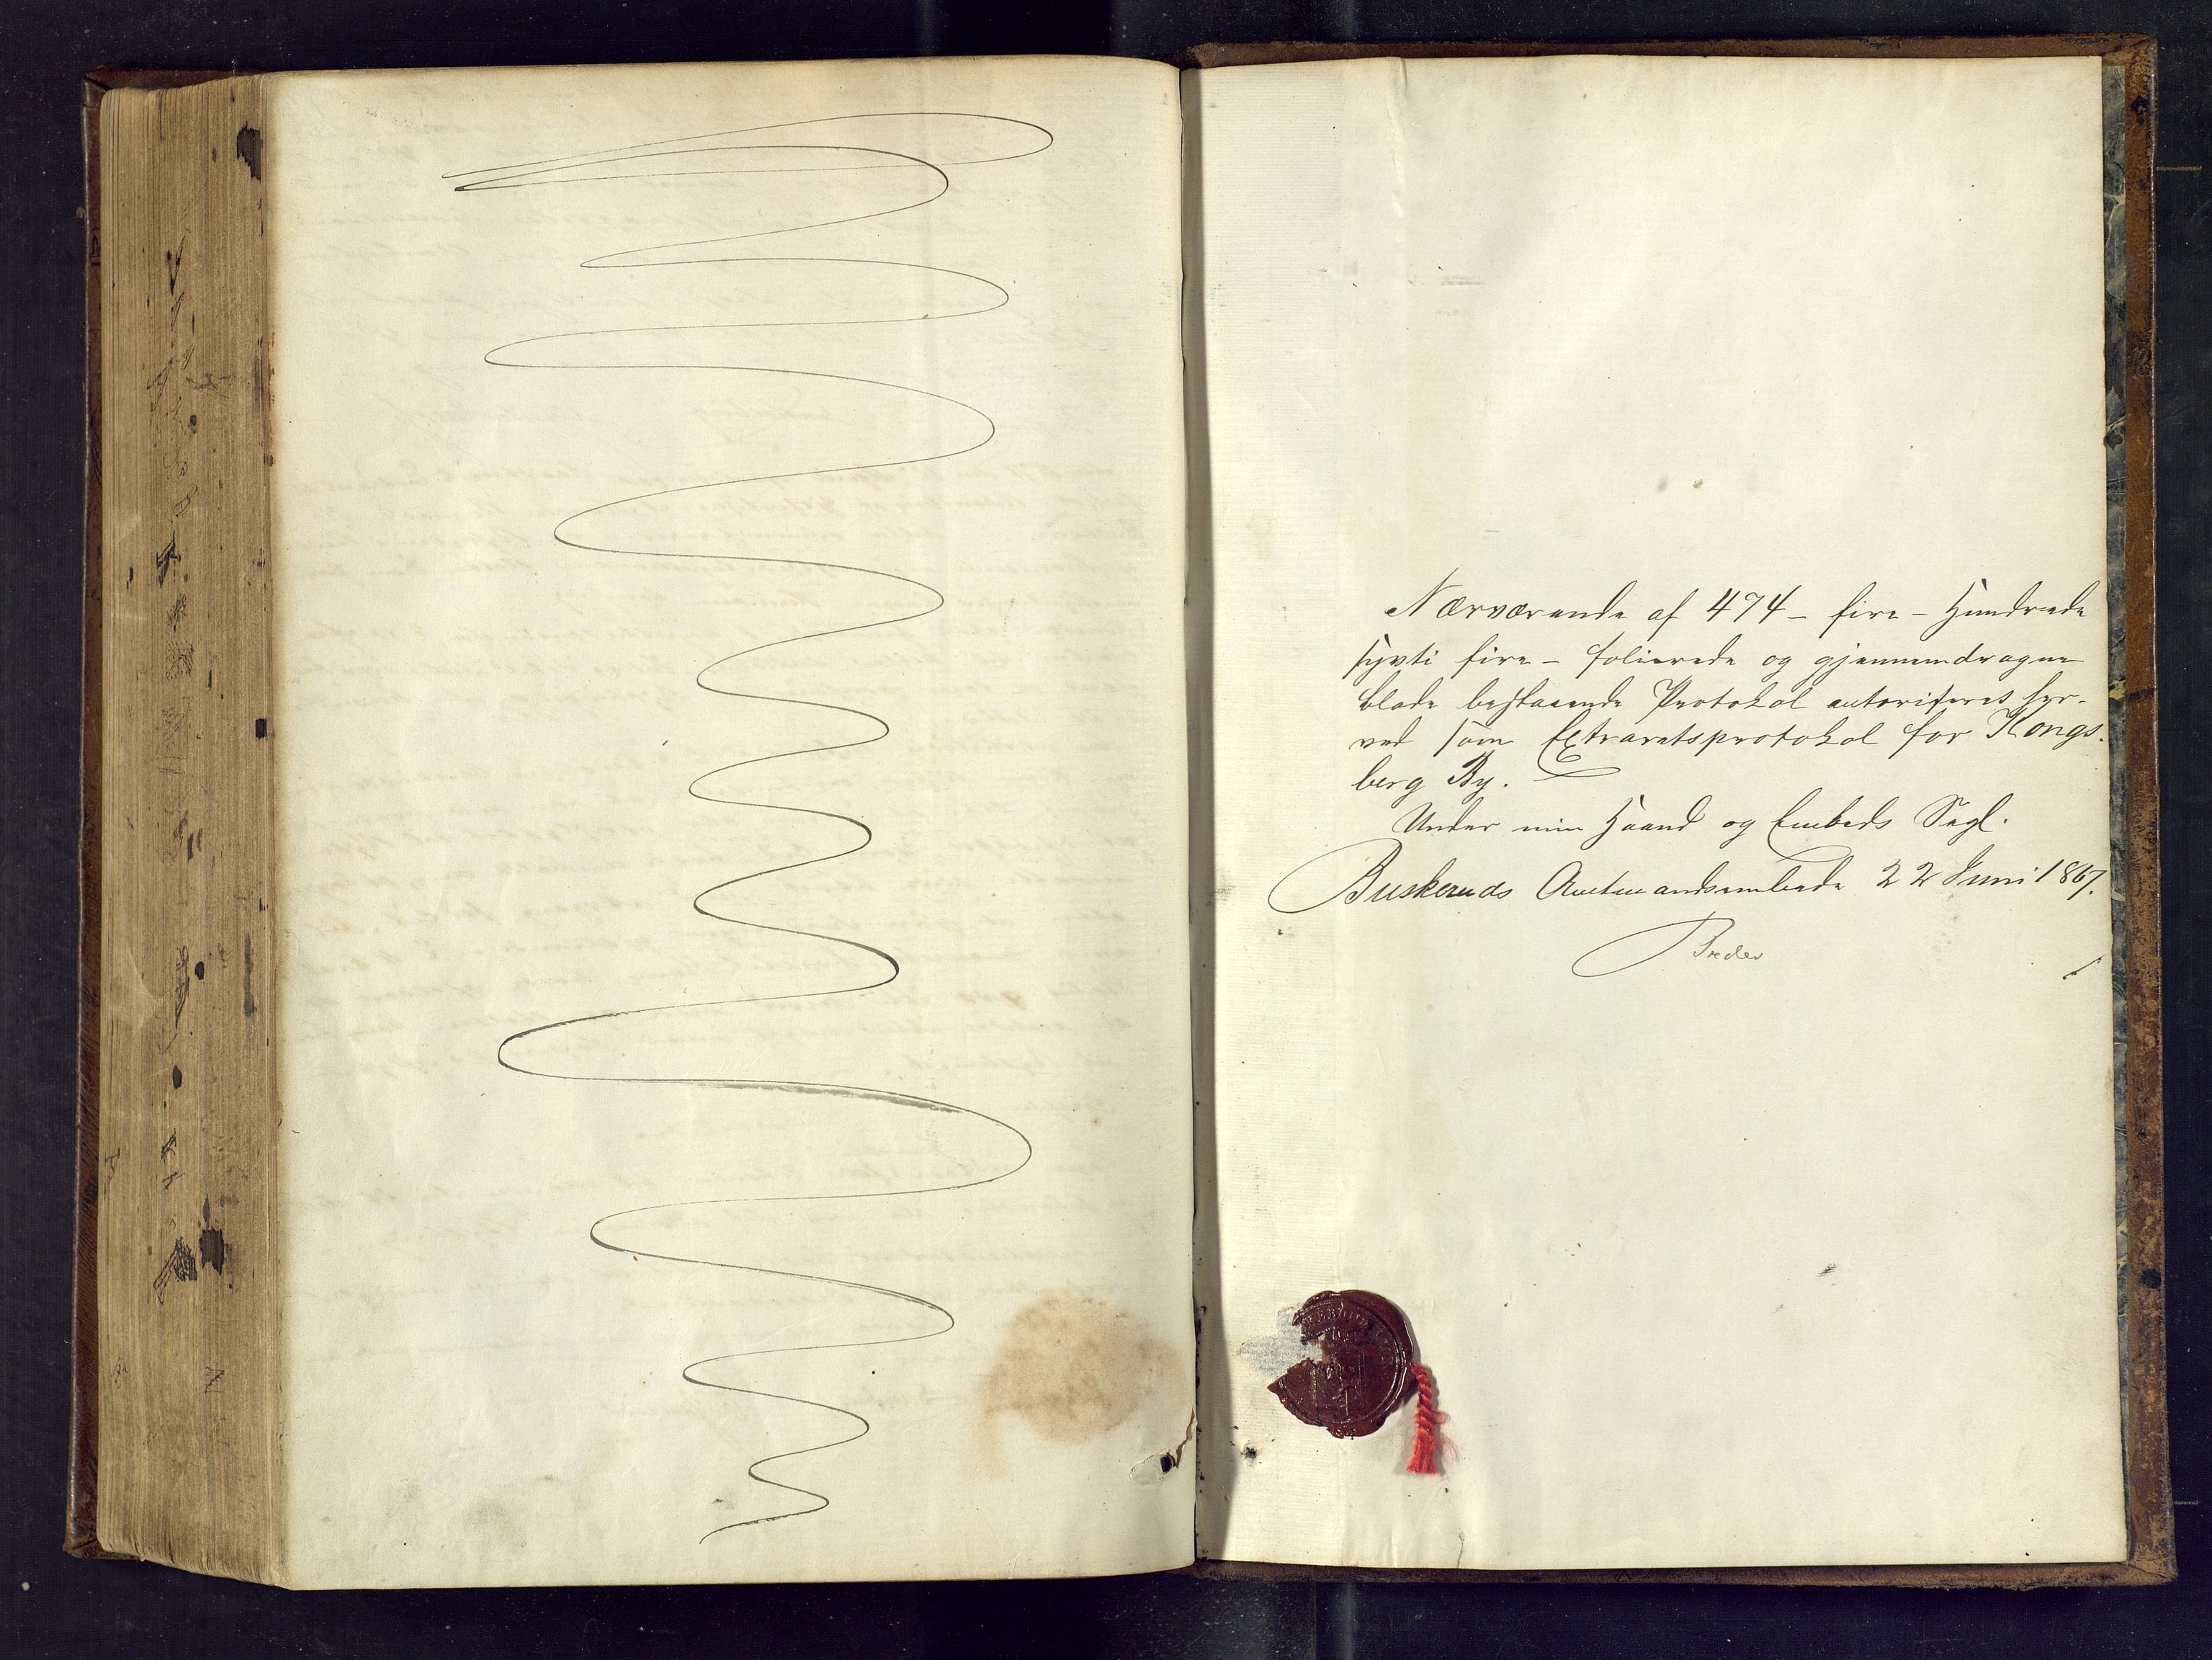 Nærværende af 474 - fire - Hundrede
sytti fire - folierede og gjennemdragne
blade bestaaende Protokol autoriseret her-
ved som Extraretsprotokol for Kongs-
berg By.
Under min Haand og Embeds Segl.
Buskeruds Amtmandsembede 22 Juni 1867.